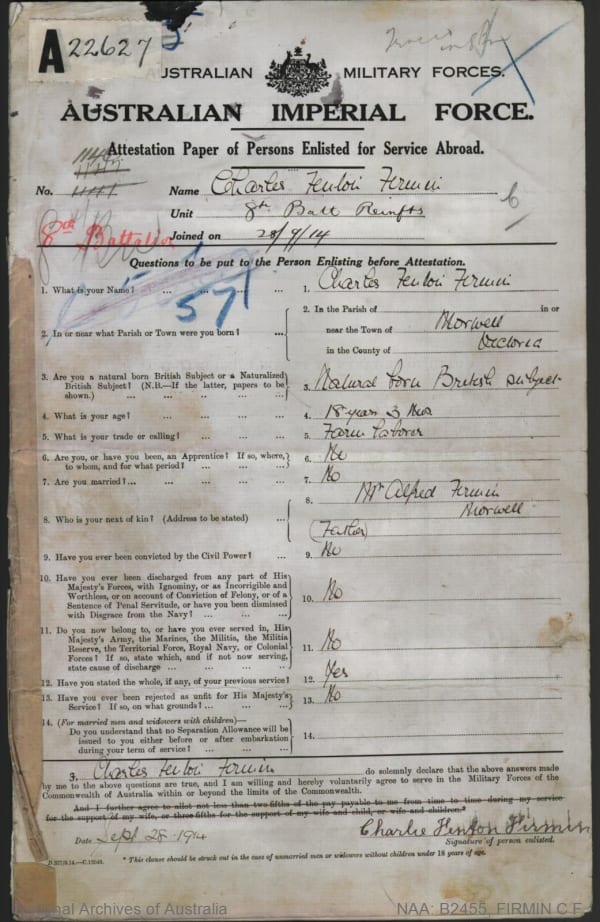 A22627
AUSTRALIAN MILITARY FORCES.
AUSTRALIAN IMPERIAL FORCE.
Attestation Paper of Persons Enlisted for Service Abroad.
No. Name Charles Fenton Firmin
Unit 8th Batt Reinfts
8th Battalion
Joined on 28/9/14
6
Questions to be put to the Person Enlisting before Attestation.
57
1. What is your Name? ... ... ... ... 1. Charles Fenton Firmin
2. In or near what Parish or Town were you born? ... 2. In the Parish of in or
near the Town of Morwell
in the County of Victoria
3. Are you a natural born British Subject or a Naturalized
British Subject? (N.B.—If the latter, papers to be
shown.) ... ... ... ... 3. Natural born British subject
4. What is your age? ... ... ... 4. 18 years 3 Mos
5. What is your trade or calling? ... ... ... 5. Farm laborer
6. Are you, or have you been, an Apprentice? If so, where,
to whom, and for what period? ... ... ... 6. No
7. Are you married? ... ... ... ... 7. No
8. Who is your next of kin? (Address to be stated) ... 8. Mr Alfred Firmin
Morwell
(Father)
9. Have you ever been convicted by the Civil Power? ... 9. No
10. Have you ever been discharged from any part of His
Majesty's Forces, with Ignominy, or as Incorrigible and
Worthless, or on account of Conviction of Felony, or of a
Sentence of Penal Servitude, or have you been dismissed
with Disgrace from the Navy? ... ... ... 10. No
11. Do you now belong to, or have you ever served in, His
Majesty's Army, the Marines, the Militia, the Militia
Reserve, the Territorial Force, Royal Navy, or Colonial
Forces? If so, state which, and if not now serving,
state cause of discharge ... ... ... 11. No
12. Have you stated the whole, if any, of your previous service? 12. Yes
13. Have you ever been rejected as unfit for His Majesty's
Service? If so, on what grounds? ... ... 13. No
14. (For married men and widowers with children)—
Do you understand that no Separation Allowance will be
issued to you either before or after embarkation
during your term of service? ... ... ... 14.
I, Charles Fenton Firmin do solemnly declare that the above answers made
by me to the above questions are true, and I am willing and hereby voluntarily agree to serve in the Military Forces of the
Commonwealth of Australia within or beyond the limits of the Commonwealth.
And I further agree to allot not less than two-fifths of the pay payable to me from time to time during my service
for the support of my wife, or three-fifths for the support of my wife and child, or wife and children.*
Date Sept 28-1914 Charlie Fenton Firmin
Signature of person enlisted.
* This clause should be struck out in the case of unmarried men or widowers without children under 18 years of age.
National Archives of Australia NAA: B2455, FIRMIN C F